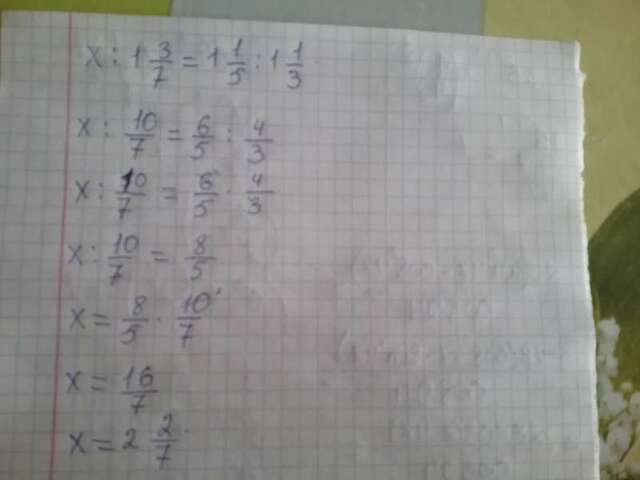 x : 1 3/7 = 1 1/5 : 1 1/3
x : 10/7 = 6/5 : 4/3
x : 10/7 = 6/5 · 4/3
x : 10/7 = 8/5
x = 8/5 · 10/7
x = 16/7
x = 2 2/7